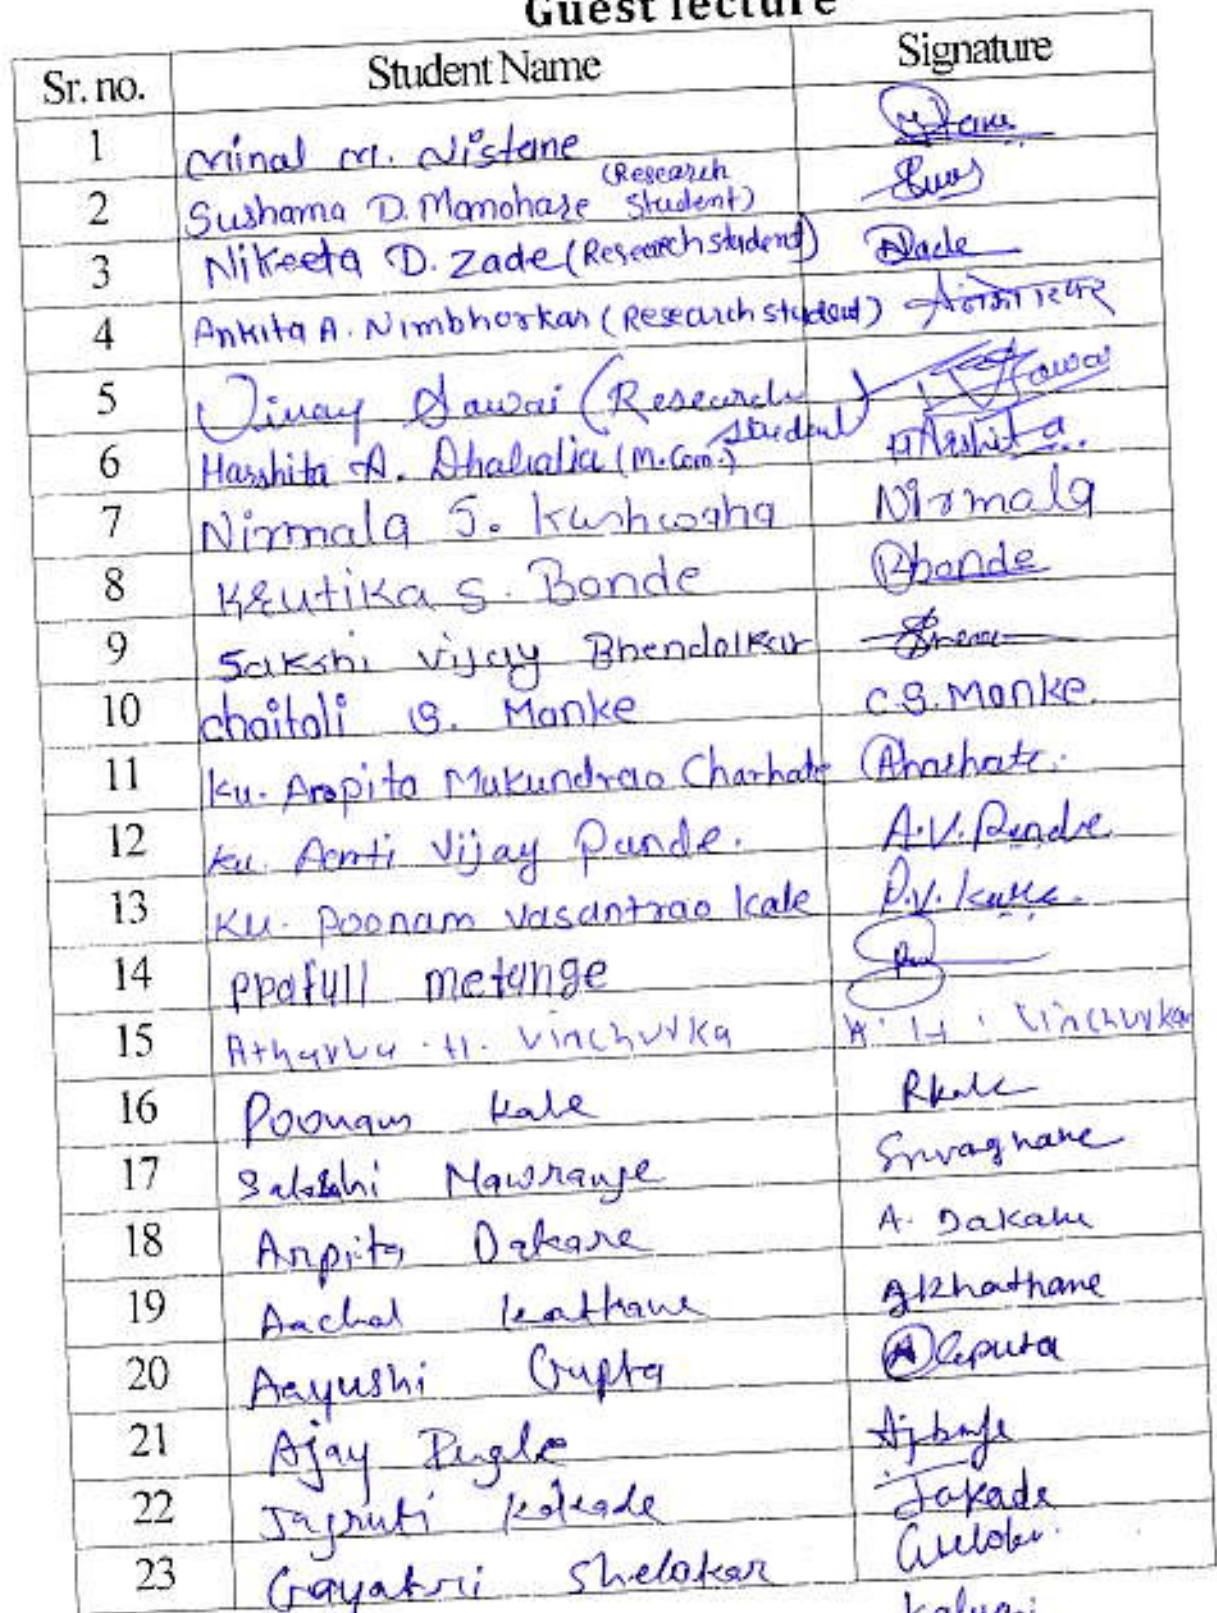 Guest lecture
Sr. no. Student Name Signature
1 Minal M. Nistane
2 Sushama D. Manohare (Research Student)
3 Nikeeta D. Zade (Research student)
4 Ankita A. Nimbhorkar (Research student)
5 Vinay Sawai (Research student)
6 Harshita A. Dhahalia (M.Com.) Harshita
7 Nirmala S. Kushwaha Nirmala
8 Krutika S. Bonde
9 Sakshi Vijay Bhendalkar
10 chaitali S. Manke C.S. Manke.
11 Ku. Arpita Mukundrao Charhate
12 Ku. Vijay Pande. A.V. Pande
13 Ku. Poonam Vasantrao Kale P.V. Kale.
14 metange
15 Atharva . H. Vinchurka A. H. Vinchurkar
16 Poonam Kale PKale
17 Sakshi
18 Arpita Dakare A. Dakare
19 Aachal Kathane
20 Aayushi Gupta
21 Ajay
22 Jagruti Kakade
23 Gayatri Shelokar
Kalyani